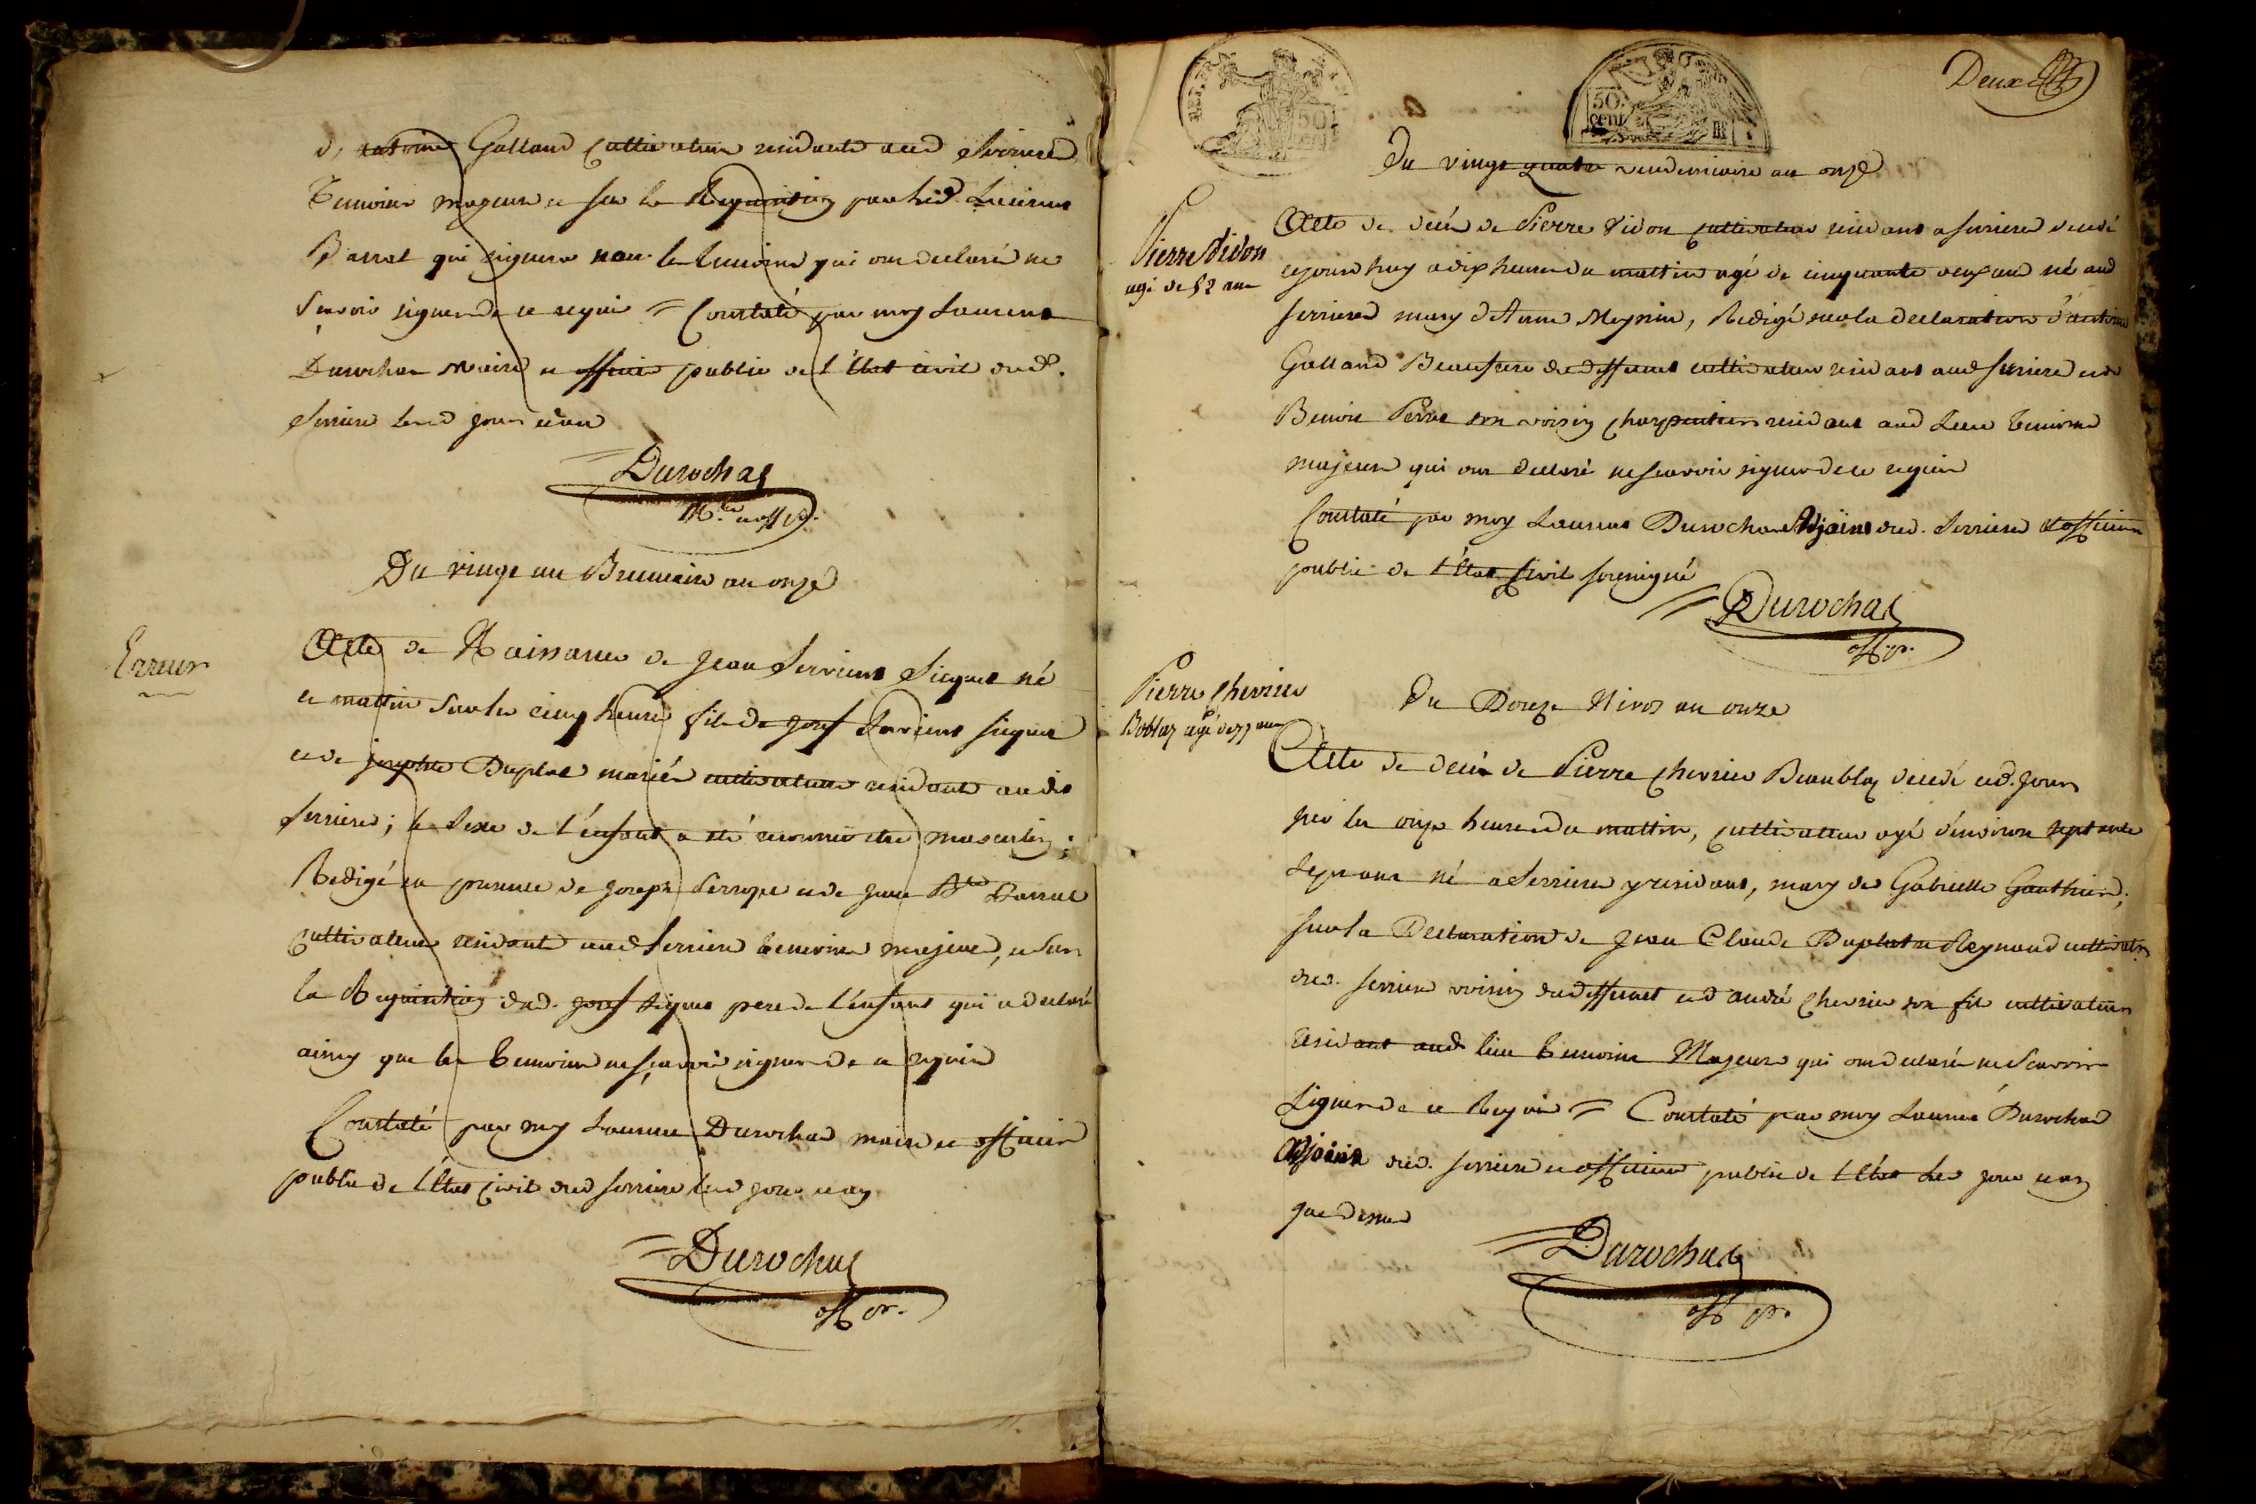 d'antoine Galland cultivateurs residants aud Serrieres
Temoins majeurs et sur la Requisition
Barrat qui signera non les temoins qui ont declaré ne
Scavoir signer de ce requis = Constaté par moy Laurens
Durochat Maire et officier public de l'Etat civil dud.
Serrieres lesd jour et an
Durochat
Du vingt un Brumaire an onze
Erreur
Acte de Naissance de Jean Serrient Siques né
ce mattin sur les cinq heures fils de Josef Serrient Siques
et de josephte Duplat mariés cultivateurs residants audit
Serrieres; le sexe de l'enfant a été reconnu etre masculin;
Redigé en presence de Joseph et de Jean Bte Barrat
cultivateurs residants aud Serrieres temoins majeurs, et sur
la Requisition dud. Josef Siques pere de l'enfant qui a declaré
ainsy que les temoins ne scavoir signer de ce requis
Constaté par moy Laurens Durochat maire et officier
public de l'Etat civil dud Serrieres lesd jour et an
Durochat
off. p.
Deux
REP. FRA
50 cent
50. cent
Du vingt quatre vendemiaire an onze
Pierre Didon
agé de 52 ans
Acte de decés de Pierre Didon cultivateur residant a Serrieres decedé
cejourd'huy a dix heures du mattin agé de cinquante deux ans né aud
Serrieres mary d'Anne Meynin, Redigé sur la declaration d'antoine
Galland Beaufrere du deffunt cultivateur residant aud Serrieres et de
Benoit Perret son voisin charpentier residant aud Lieu temoins
majeurs qui ont declaré ne scavoir signer de ce requis
Constaté par moy Laurens Durochat Adjoint dud. Serrieres et officier
public de l'Etat Civil soussigné
Durochat
off. p.
Pierre Chevrier
Bobloz agé de 77 ans
Du Douze Nivos an onze
Acte de decés de Pierre Chevrier Beaubloz decedé ced. jour
sur les onze heures du mattin, cultivateur agé d'environ septante
sept ans né a Serrieres y residant, mary de Gabrielle Gauthier;
sur la Declaration de Jean Claude Duplatre Reynaud cultivateur
dud. Serrieres voisin du deffunt et d'andré Chevrier son fils cultivateur
Residant aud lieu temoins Majeurs qui ont declaré ne Scavoir
Signer de ce Requis = Constaté par moy Laurens Durochat
Adjoint dud. Serrieres et officier public de l'Etat les jour et an
que dessus
Durochat
off. p.